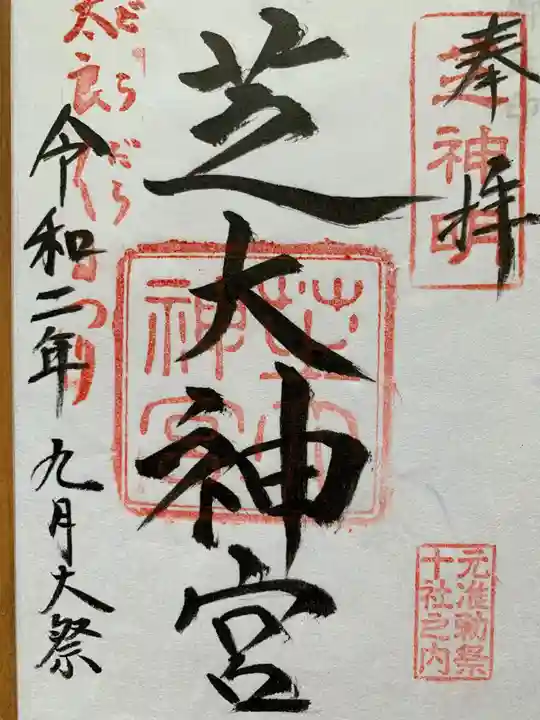 奉拝
芝神明
芝大神宮
芝大神宮
元准勅祭
十社之内
だらだら
太良くまつり
令和二年九月大祭